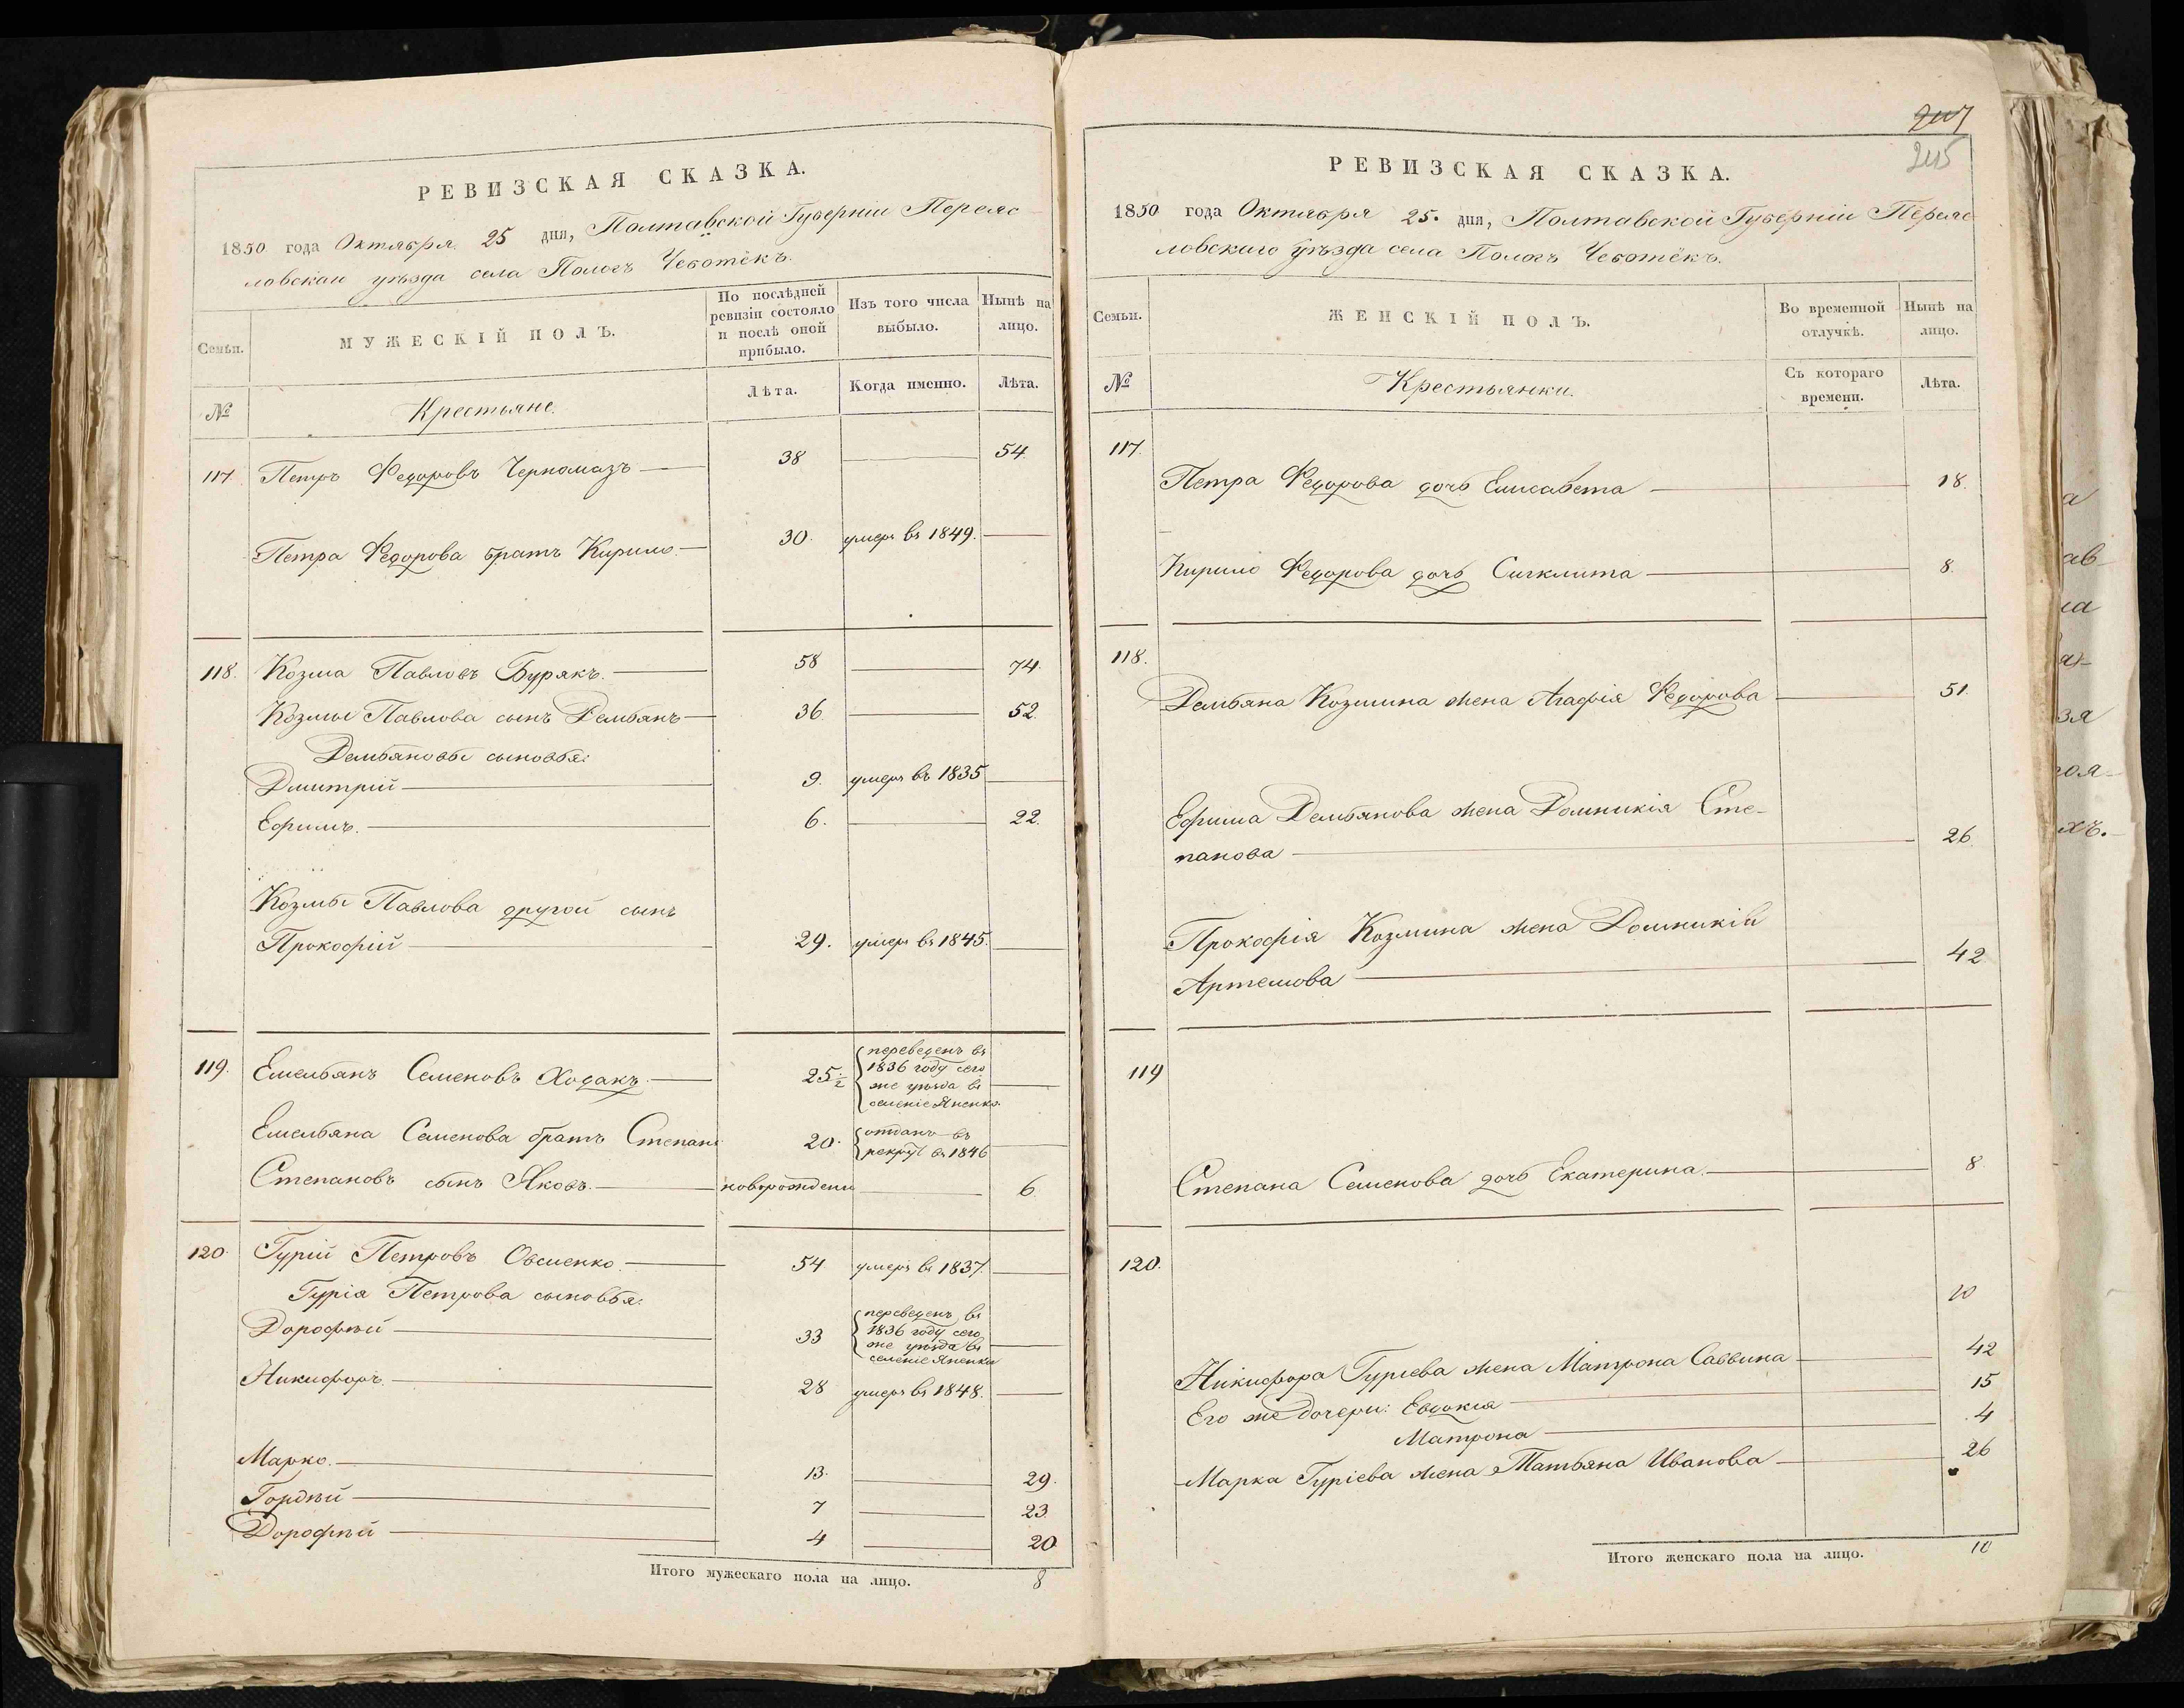 РЕВИЗСКАЯ СКАЗКА.
1850 года Октября 25 дня, Полтавской Губерніи Переяс
ловскаго уѣзда села Пологъ Чеботёкъ.
Семьи.
МУЖЕСКІЙ ПОЛЪ.
По послѣдней
ревизіи состояло
и послѣ оной
прибыло.
Изъ того числа
выбыло.
Нынѣ на
лицо.
№
Крестьяне.
Лѣта.
Когда именно.
Лѣта.
117. Петръ Федоровъ Черномазъ 38 54.
Петра Федорова братъ Кирило 30. умеръ въ 1849.
118. Козма Павловъ Бурякъ. 58 74.
Козмы Павлова сынъ Демьянъ 36 52.
Демьяновы сыновья:
Дмитрій 9. умеръ въ 1835
Ефимъ. 6. 22.
Козмы Павлова другой сынъ
Прокофій 29. умеръ въ 1845.
119. Емельянъ Семеновъ Ходакъ. 25½ переведенъ въ
1836 году сего
же уѣзда въ
селеніе Яненки.
Емельяна Семенова братъ Степанъ 20. отданъ въ
рекруты въ 1846
Степановъ сынъ Яковъ. новорожденъ 6.
120. Гурій Петровъ Овсіенко. 54 умеръ въ 1837.
Гурія Петрова сыновья:
Дорофѣй 33 переведенъ въ
1836 году сего
же уѣзда въ
селеніе Яненки
Никифоръ. 28 умеръ въ 1848.
Марко. 13. 29.
Гордѣй 7 23.
Дорофѣй 4 20
Итого мужескаго пола на лицо. 8
245
РЕВИЗСКАЯ СКАЗКА.
1850 года Октября 25. дня, Полтавской Губерніи Переяс
ловскаго уѣзда села Пологъ Чеботёкъ.
Семьи.
ЖЕНСКІЙ ПОЛЪ.
Во временной
отлучкѣ.
Нынѣ на
лицо.
№
Крестьянки.
Съ котораго
времени.
Лѣта.
117.
Петра Федорова дочь Елисавета 18.
Кирило Федорова дочь Сигклита 8.
118.
Демьяна Козмина жена Агафія Федорова 51.
Ефима Демьянова жена Домникія Сте-
панова 26.
Прокофія Козмина жена Домникія
Артемова 42
119
Степана Семенова дочь Екатерина. 8
120.
10
Никифора Гуріева жена Матрона Саввина 42
Его же дочери: Евдокія 15
Матрона 4
Марка Гуріева жена Татьяна Иванова 26
Итого женскаго пола на лицо. 10